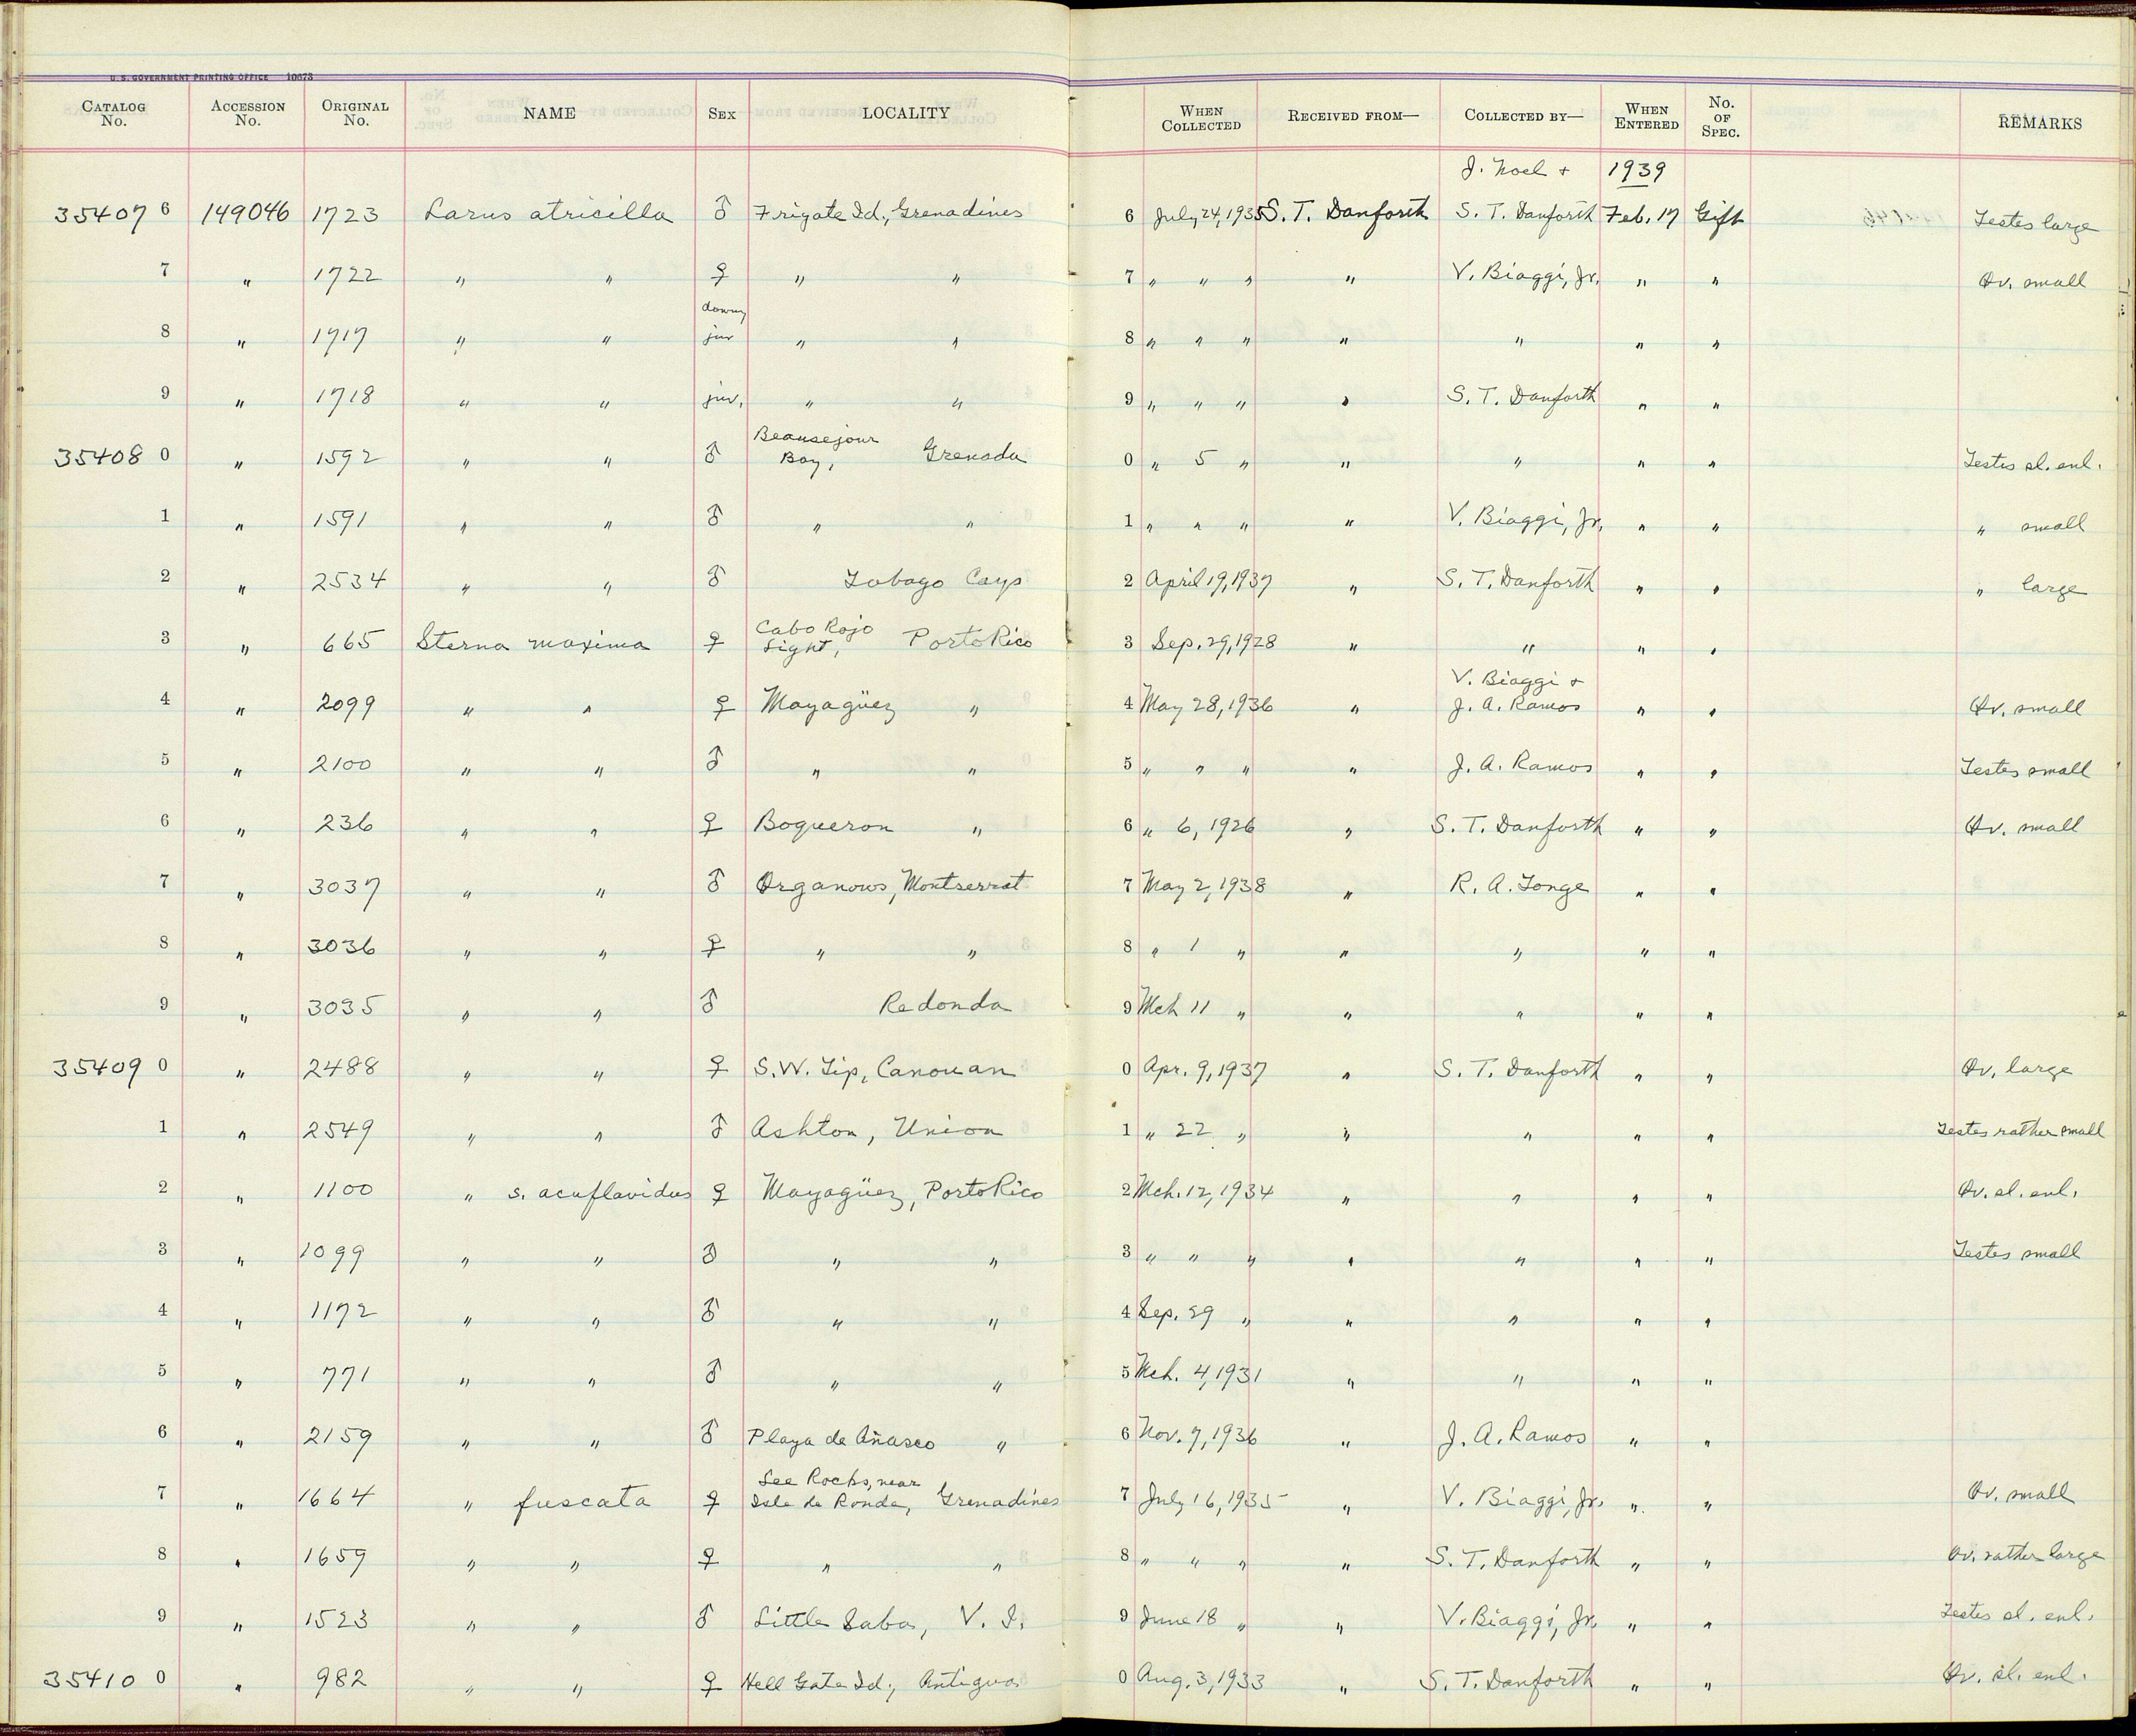 U. S. GOVERNMENT PRINTING OFFICE 10673
CATALOG No. ACCESSION No. ORIGINAL No. NAME SEX LOCALITY WHEN COLLECTED RECEIVED FROM— COLLECTED BY— WHEN ENTERED No. OF SPEC. REMARKS
J. Noel + 1939
35407 6 149046 1723 Larus atricilla ♂ Frigate Id., Grenadines 6 July 24, 1935 S. T. Danforth S. T. Danforth Feb. 17 Gift Testes large
7 " 1722 " " ♀ " " 7 " " " " V. Biaggi, Jr. " " Ov. small
downy
8 " 1717 " " juv " " 8 " " " " " " "
9 " 1718 " " juv. " " 9 " " " " S. T. Danforth " "
Beausejour
35408 0 " 1592 " " ♂ Bay, Grenada 0 " 5 " " " " " Testes sl. enl.
1 " 1591 " " ♂ " " 1 " " " " V. Biaggi, Jr. " " " small
2 " 2534 " " ♂ Tobago Cays 2 April 19, 1937 " S. T. Danforth " " " large
Cabo Rojo
3 " 665 Sterna maxima ♀ Light, Porto Rico 3 Sep. 29, 1928 " " " "
V. Biaggi +
4 " 2099 " " ♀ Mayagüez " 4 May 28, 1936 " J. A. Ramos " " Ov. small
5 " 2100 " " ♂ " " 5 " " " " J. A. Ramos " " Testes small
6 " 236 " " ♀ Boqueron " 6 " 6, 1926 " S. T. Danforth " " Ov. small
7 " 3037 " " ♂ Organows, Montserrat 7 May 2, 1938 " R. A. Tonge " "
8 " 3036 " " ♀ " " 8 " 1 " " " " "
9 " 3035 " " ♂ Redonda 9 Mch 11 " " " " "
35409 0 " 2488 " " ♀ S. W. Tip, Canouan 0 Apr. 9, 1937 " S. T. Danforth " " Ov. large
1 " 2549 " " ♂ Ashton, Union 1 " 22 " " " " " Testes rather small
2 " 1100 " s. acuflavidus ♀ Mayagüez, Porto Rico 2 Mch. 12, 1934 " " " " Ov. sl. enl.
3 " 1099 " " ♂ " " 3 " " " " " " " Testes small
4 " 1172 " " ♂ " " 4 Sep. 29 " " " " "
5 " 771 " " ♂ " " 5 Mch. 4, 1931 " " " "
6 " 2159 " " ♂ Playa de Añasco " 6 Nov. 7, 1936 " J. A. Ramos " "
Lee Rocks, near
7 " 1664 " fuscata ♀ Isle de Ronde, Grenadines 7 July 16, 1935 " V. Biaggi, Jr. " " Ov. small
8 " 1659 " " ♀ " " 8 " " " " S. T. Danforth " " Ov. rather large
9 " 1523 " " ♂ Little Saba, V. I. 9 June 18 " " V. Biaggi, Jr. " " Testes sl. enl.
35410 0 " 982 " " ♀ Hell Gate Id., Antigua 0 Aug. 3, 1933 " S. T. Danforth " " Ov. sl. enl.